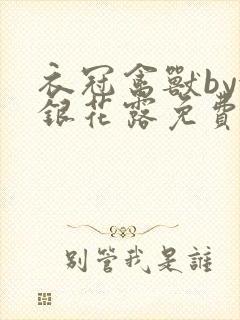 衣冠禽獸by
銀花露免費
別管我是誰